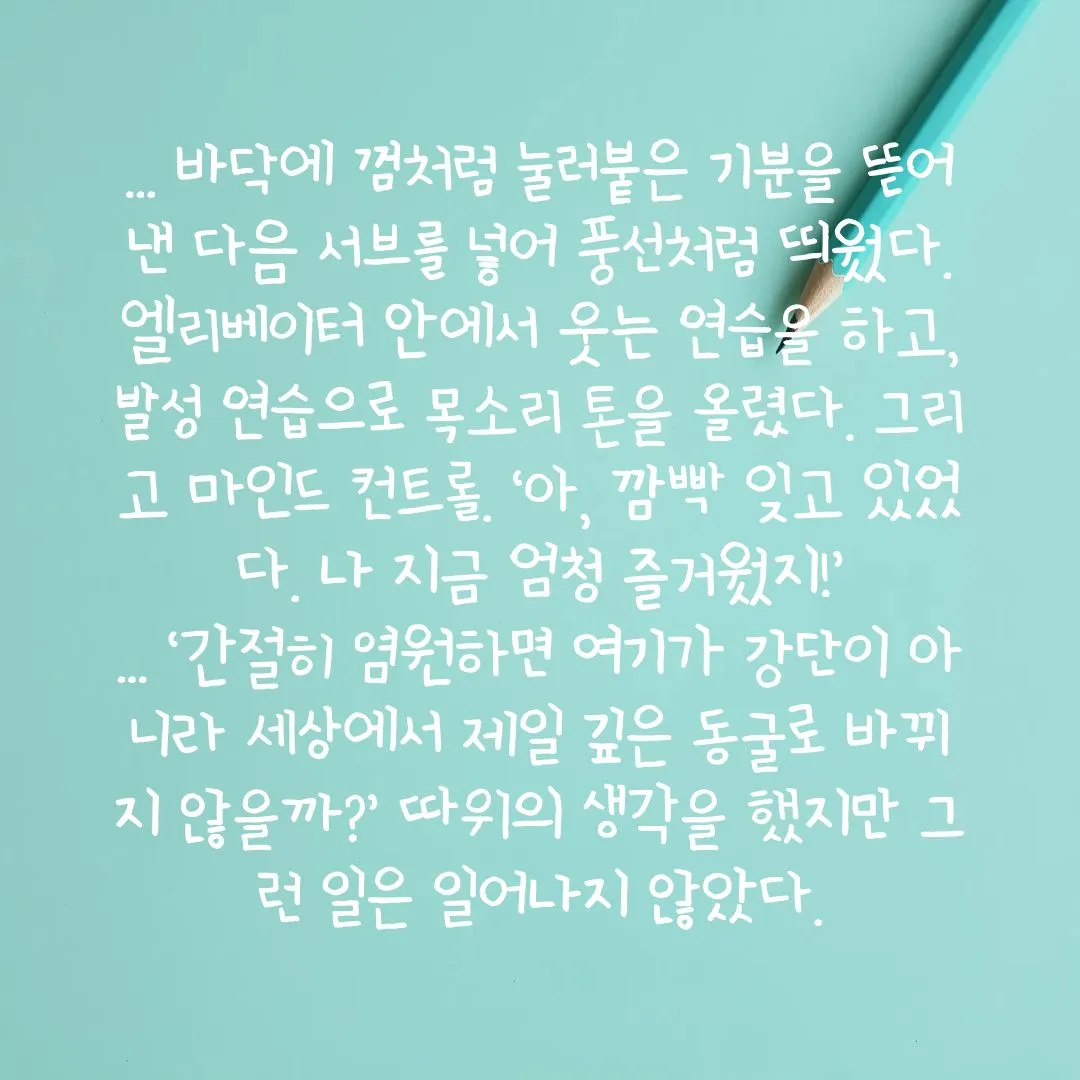 ... 바닥에 껌처럼 눌러붙은 기분을 뜯어
낸 다음 서브를 넣어 풍선처럼 띄웠다.
엘리베이터 안에서 웃는 연습을 하고,
발성 연습으로 목소리 톤을 올렸다. 그리
고 마인드 컨트롤. ‘아, 깜빡 잊고 있었
다. 나 지금 엄청 즐거웠지!’
... ‘간절히 염원하면 여기가 강단이 아
니라 세상에서 제일 깊은 동굴로 바뀌
지 않을까?’ 따위의 생각을 했지만 그
런 일은 일어나지 않았다.